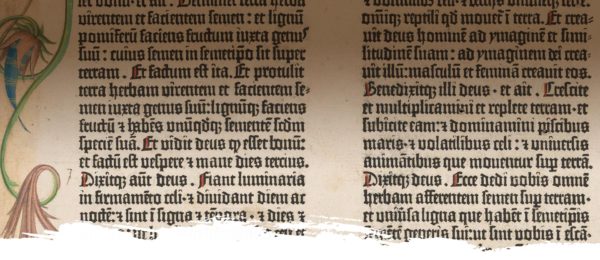 virentem et facientem semen: et lignū
pomiferū faciens fructum iuxta genus
suū: cuius semen in semetipso sit super
terram. Et factum est ita. Et protulit
terra herbam virentem et facientem se=
men iuxta genus suū: lignūqꝫ faciens
fructū ⁊ habēs unūqdqꝫ sementē scdm
speciē suā. Et vidit deus ꝙ esset bonū:
et factū est vespere et mane dies tercius.
Dixitqꝫ aūt deus. Fiant luminaria
in firmamēto celi · ⁊ dividant diem ac
noctē: ⁊ sint ī signa ⁊ tēpora · ⁊ dies ⁊
omīqꝫ reptili qđ movet̄ ī terra. Et crea=
vit deus hominē ad ymaginē et simi=
litudinē suam: ad ymaginem dei crea=
vit illū: masculū et feminā creavit eos.
Benedixitqꝫ illis deus · et ait. Crescite
et multiplicamini et replete terram · et
subicite eam: et dominamini piscibus
maris · et volatilibus celi: et universis
animātibus que moventur sup terrā.
Dixitqꝫ deus. Ecce dedi vobis omnē
herbam afferentem semen sup terram ·
et univ̄sa ligna que habēt ī semetip̄is
sementē generis sui: ut sint vobis ī escā·